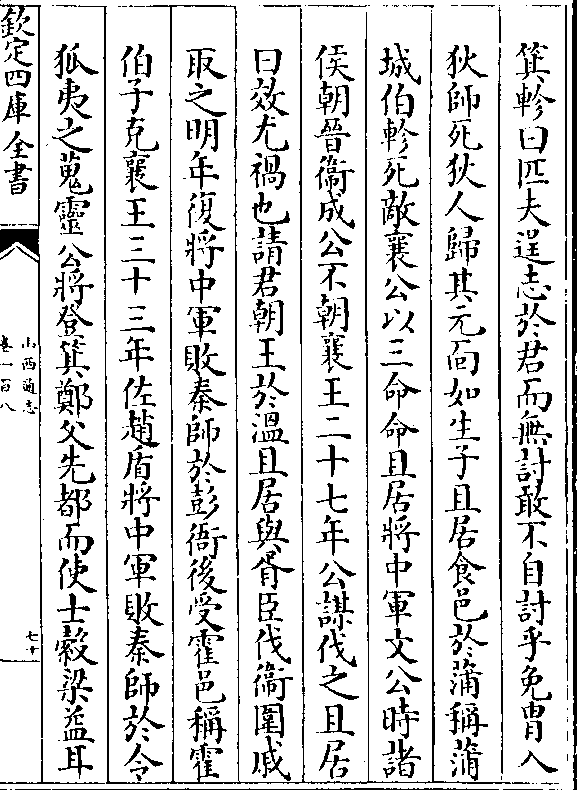 箕軫曰匹夫逞志於君而無討敢不自討乎免胄入
狄師死狄人歸其元面如生子且居食邑於蒲稱蒲
城伯軫死敵襄公以三命命且居將中軍文公時諸
侯朝晉衞成公不朝襄王二十七年公謀伐之且居
曰效尤禍也請君朝王於溫且居與胥臣伐衞圍戚
取之明年復將中軍敗秦師於彭衙後受霍邑稱霍
伯子克襄王三十三年佐趙盾將中軍敗秦師於令
狐夷之蒐靈公將登箕鄭父先都而使士縠梁益耳
欽定四庫全書
山西通志
卷一百八
七十